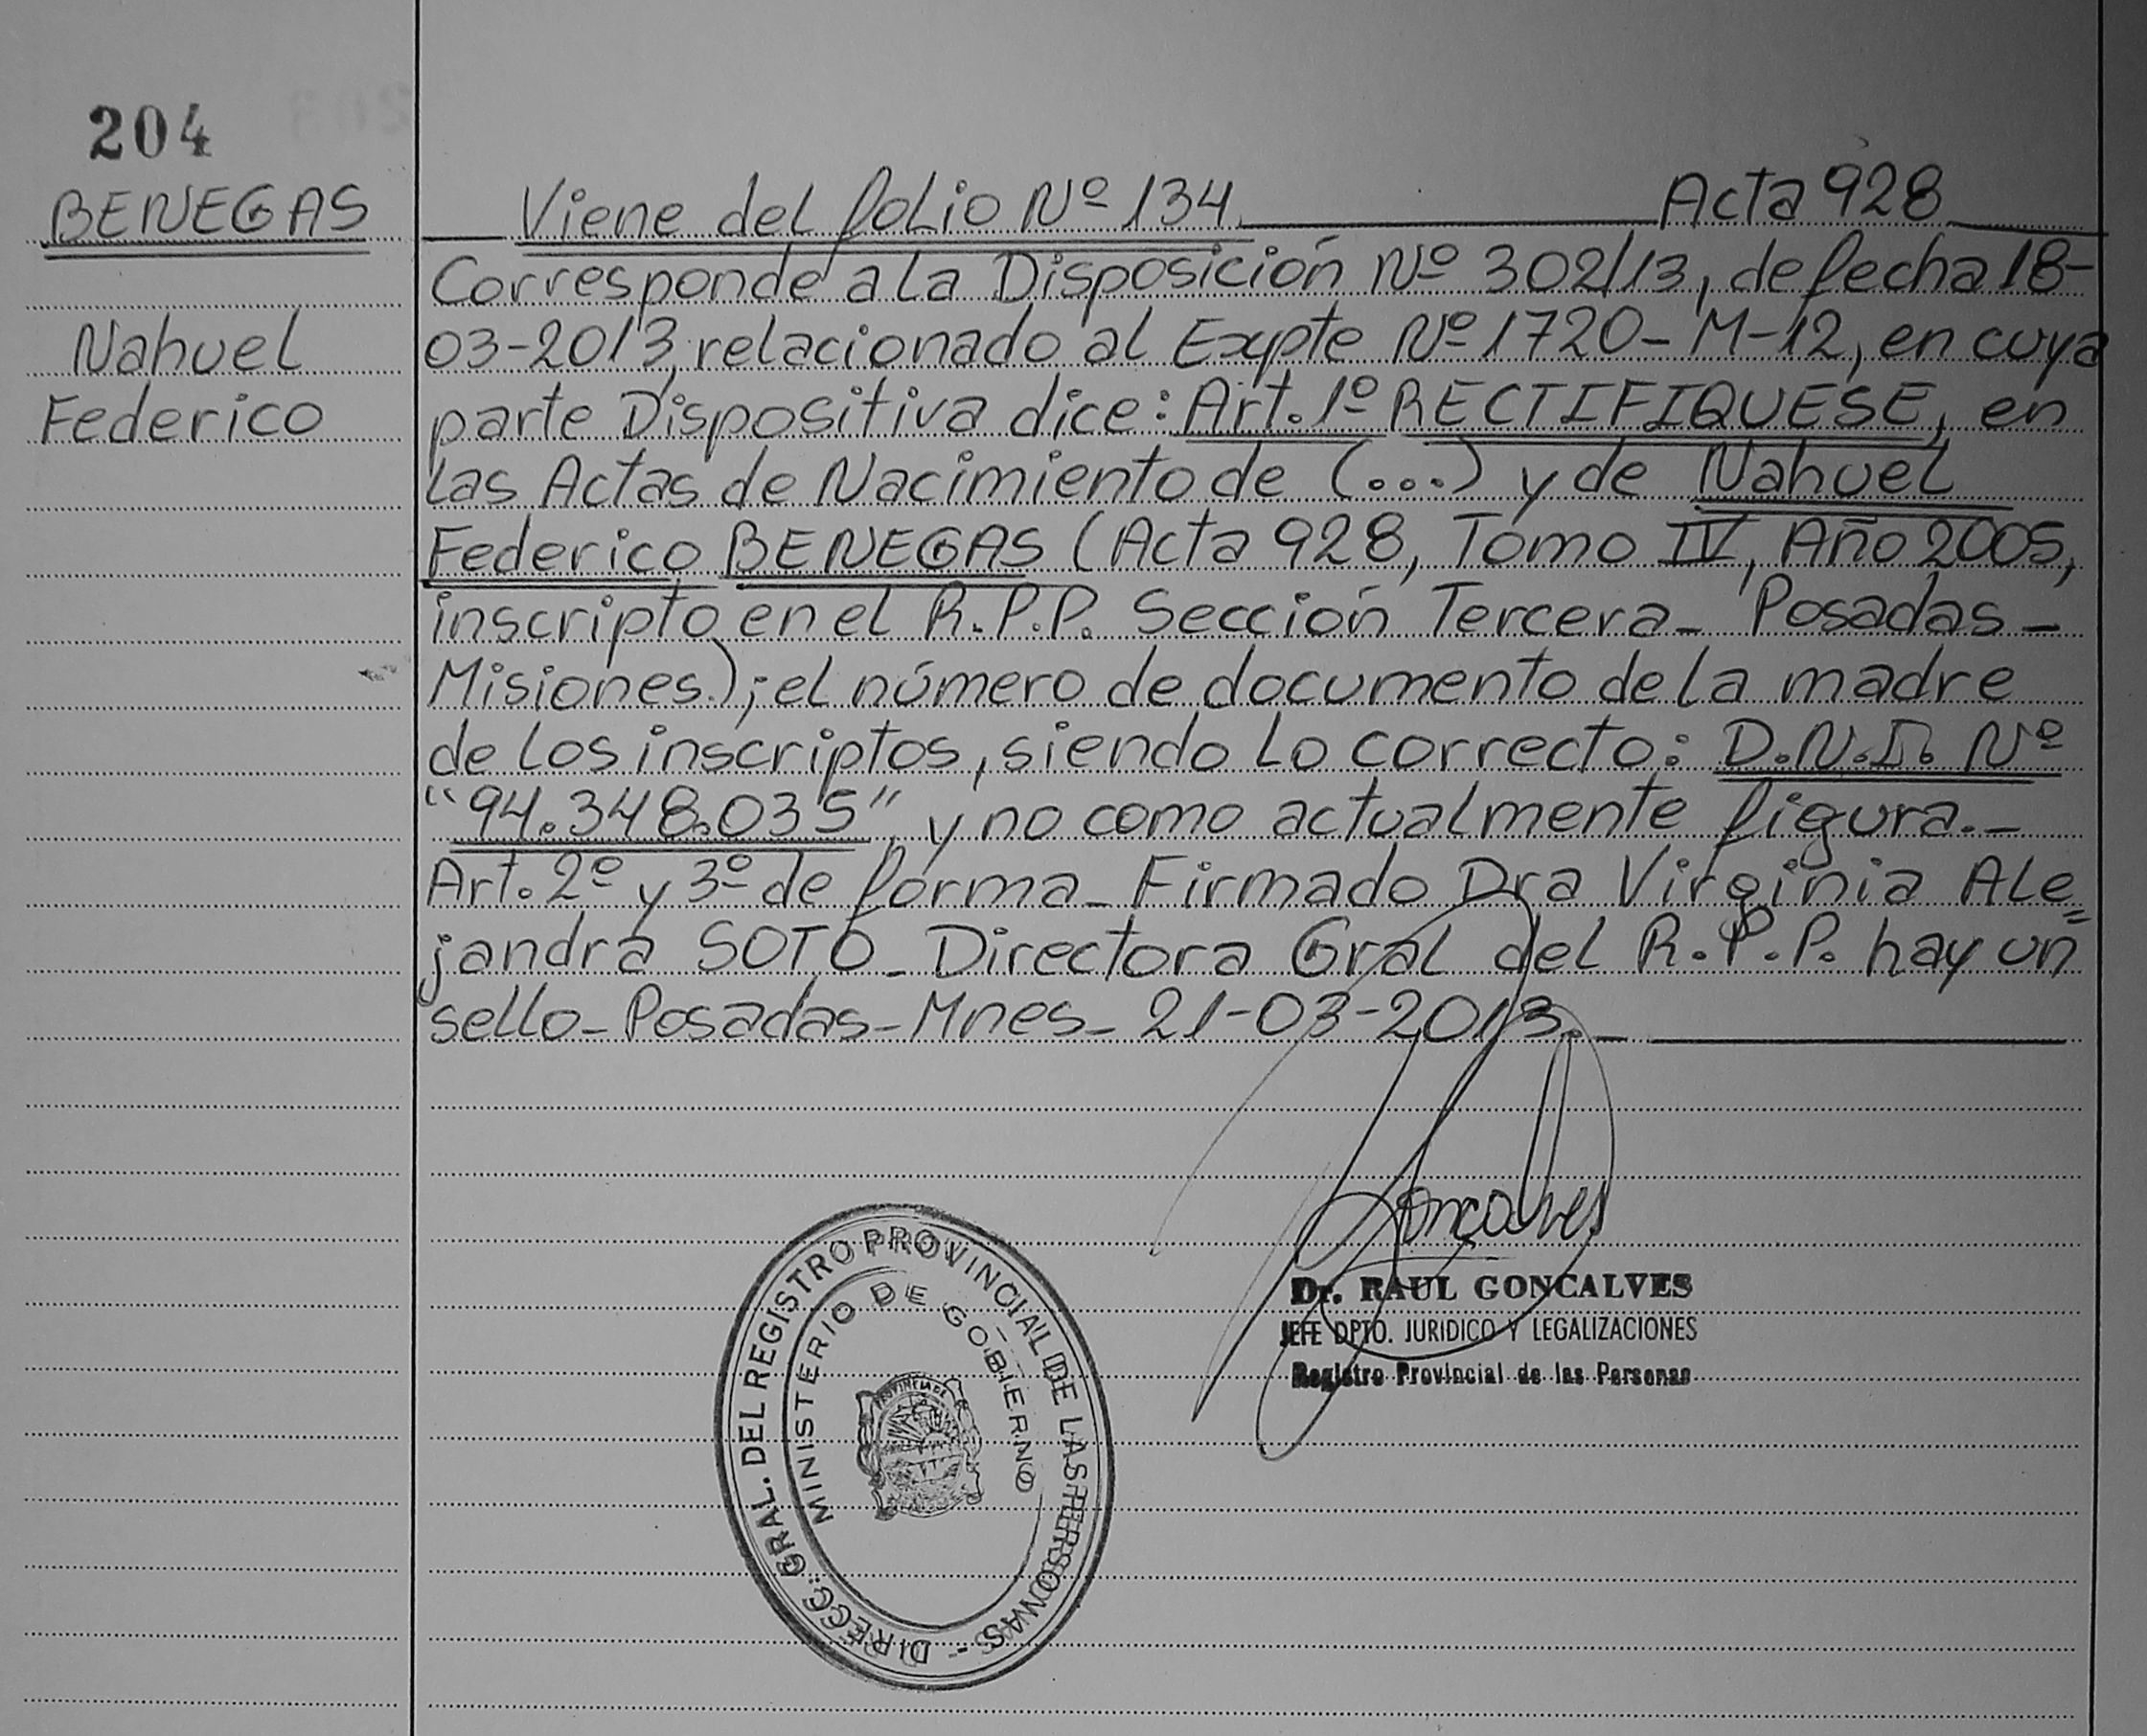 204
BENEGAS
Nahuel
Federico
Viene del folio Nº 134. Acta 928
Corresponde a la Disposición Nº 302/13, de fecha 18-
03-2013, relacionado al Expte Nº 1720-M-12, en cuya
parte Dispositiva dice: Art. 1º RECTIFIQUESE, en
las Actas de Nacimiento de (...) y de Nahuel
Federico BENEGAS (Acta 928, Tomo IV, Año 2005,
inscripto en el R.P.P. Sección Tercera- Posadas-
Misiones.); el número de documento de la madre
de los inscriptos, siendo lo correcto: D.N.I. Nº
"94.348.035", y no como actualmente figura.-
Art. 2º y 3º de forma- Firmado Dra Virginia Ale=
jandra SOTO- Directora Gral del R.P.P. hay un
sello- Posadas- Mnes- 21-03-2013.-
Goncalves
Dr. RAUL GONCALVES
JEFE DPTO. JURIDICO Y LEGALIZACIONES
Registro Provincial de las Personas
DIRECC. GRAL. DEL REGISTRO PROVINCIAL DE LAS PERSONAS -
MINISTERIO DE GOBIERNO
PROVINCIA DE